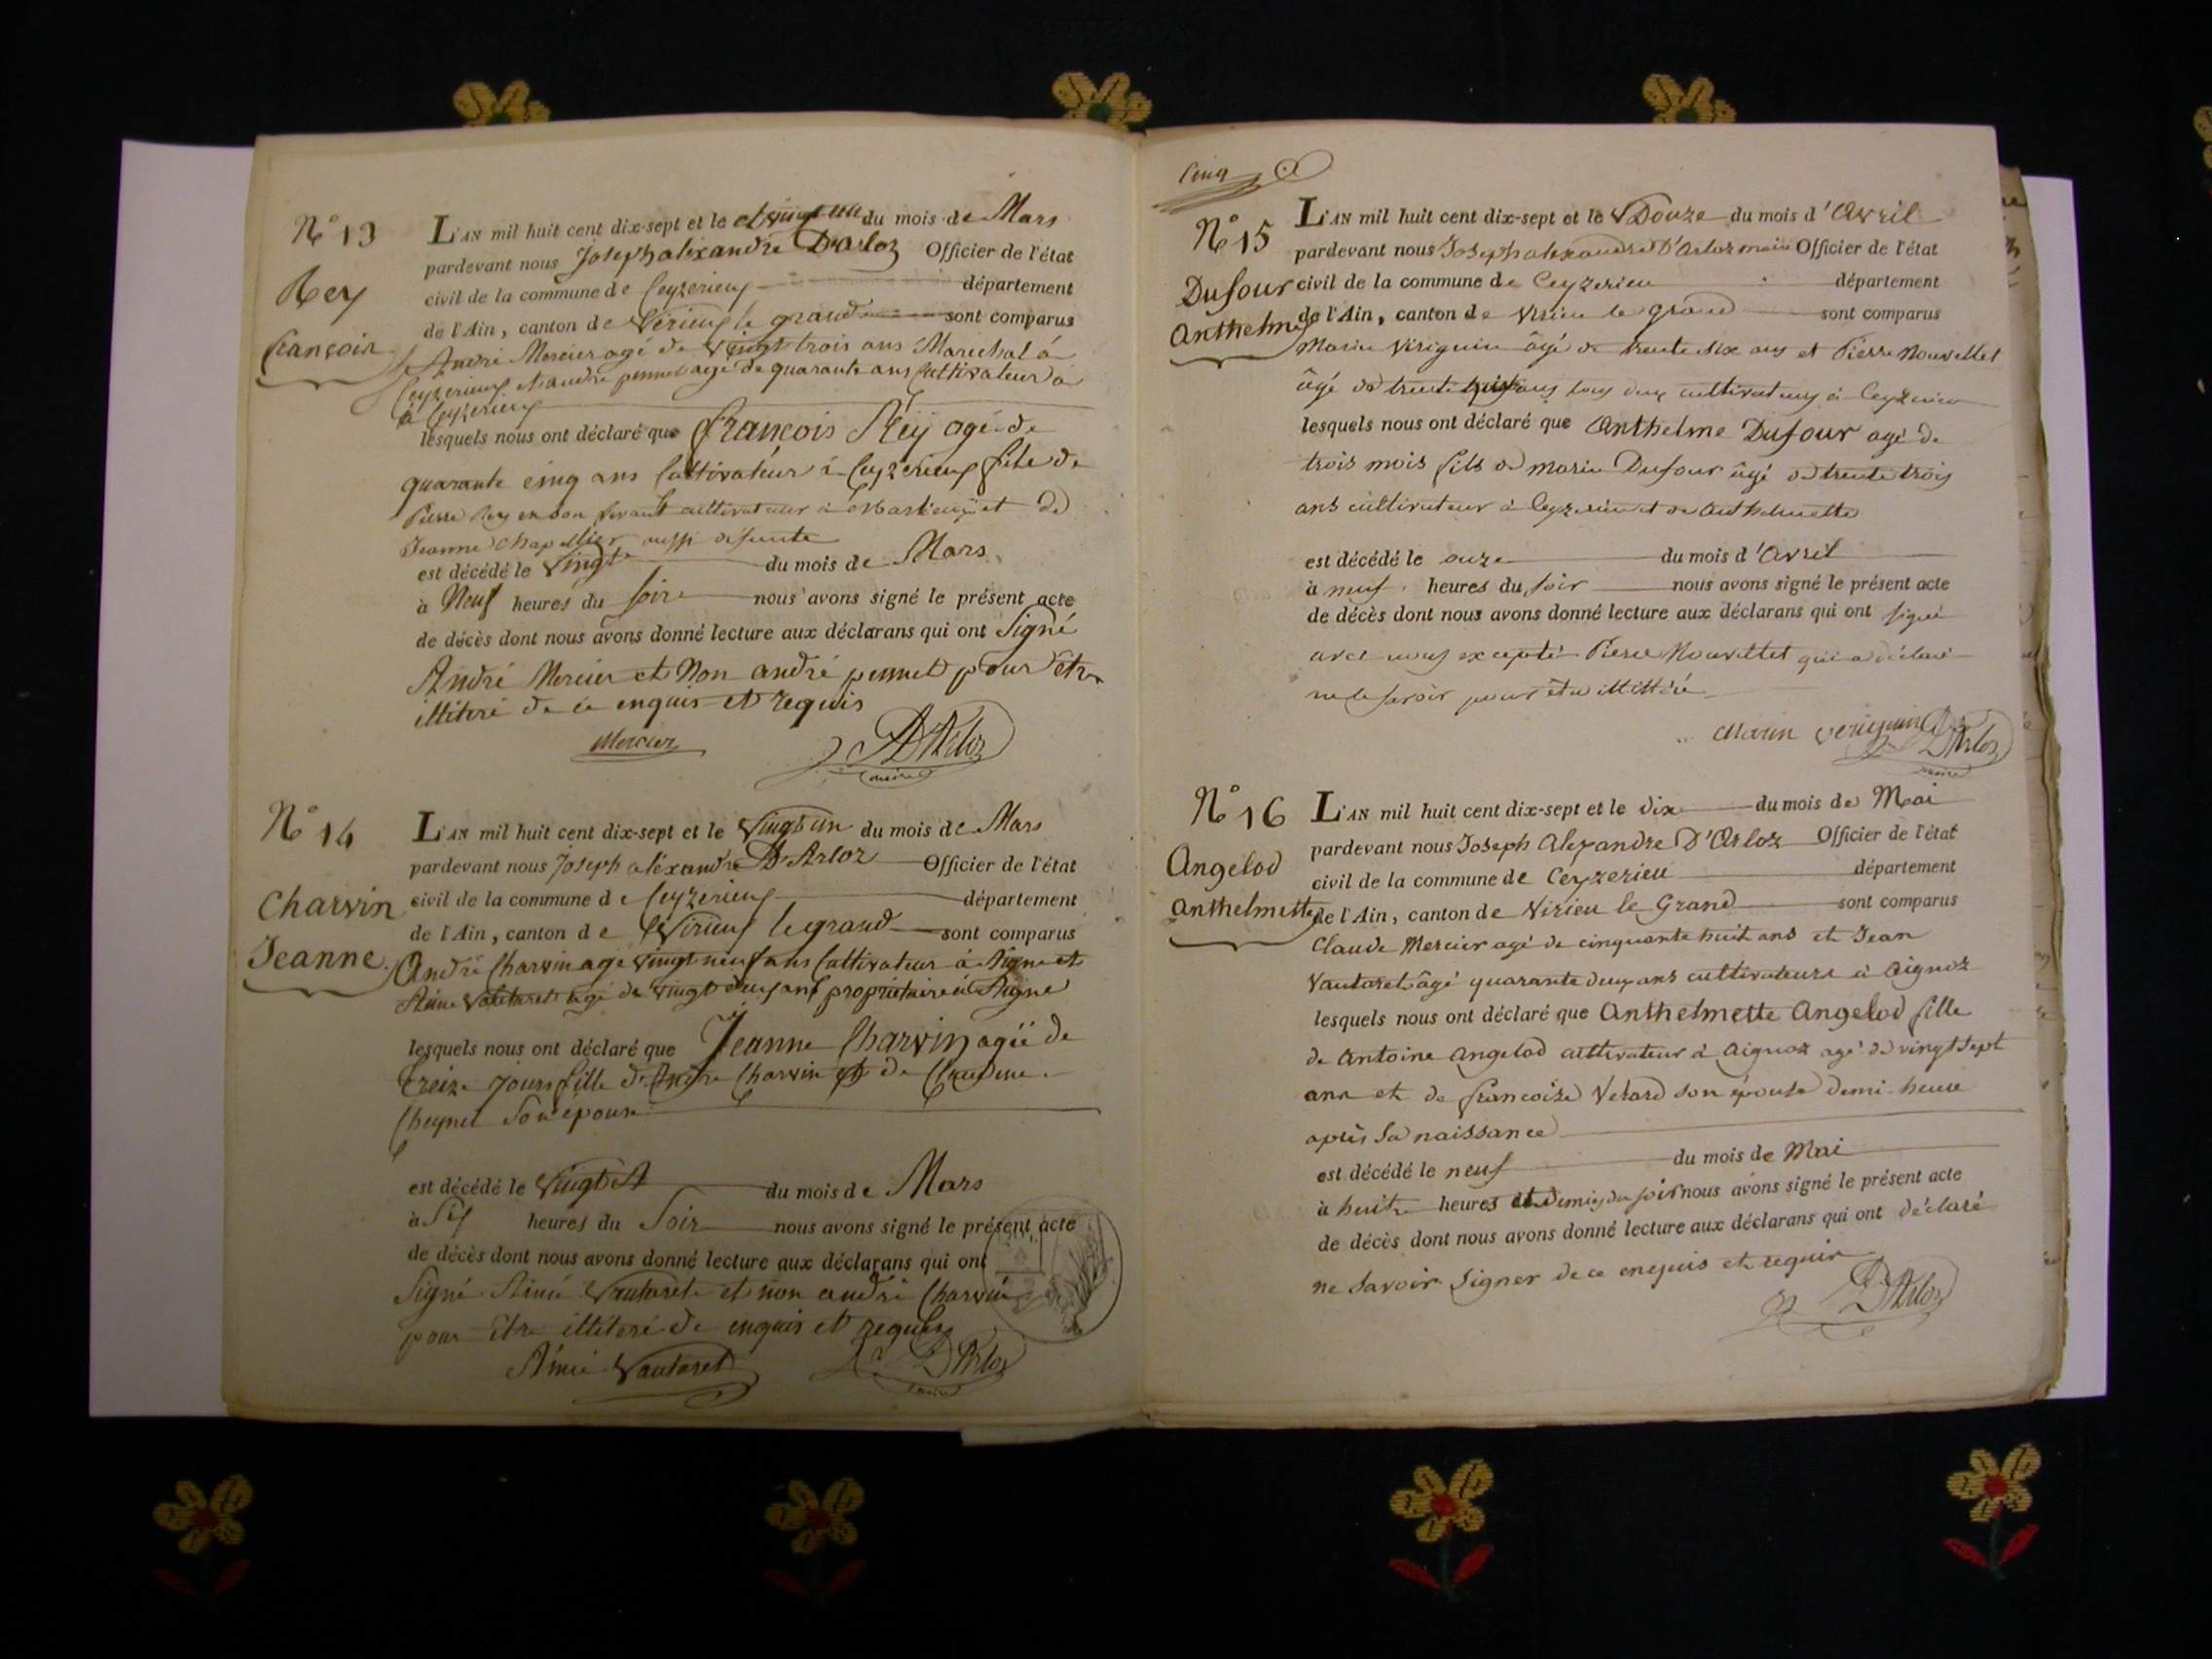 N° 13
Rey
françois
L'AN mil huit cent dix-sept et le vingt un du mois de Mars
pardevant nous Joseph alexandre Darloz Officier de l'état
civil de la commune de Ceyzerieux département
de l'Ain, canton de Virieux le grand sont comparus
André Mercier agé de vingt trois ans Marechal á
Ceyzerieux et andré pernet agé de quarante ans Cultivateur a
à Ceyzerieux
lesquels nous ont déclaré que françois Reÿ agé de
quarante cinq ans Cultivateur á Ceyzerieux fils de
Pierre Rey en son vivant cultivateur à et de
Jeanne Chapellier aussi défunte
est décédé le vingt du mois de Mars
à Neuf heures du soir nous avons signé le présent acte
de décès dont nous avons donné lecture aux déclarans qui ont Signé
André Mercier et Non andré pernet pour être
illiteré de ce enquis et requis
Mercier
DArloz
maire
N° 14
Charvin
Jeanne
L'AN mil huit cent dix-sept et le vingt un du mois de Mars
pardevant nous Joseph aléxandre D'Arloz Officier de l'état
civil de la commune de Ceyzerieux département
de l'Ain, canton de Virieux le grand sont comparus
André Charvin agé vingt neuf ans Cultivateur à Aigne et
Aimé Vautaret agé de vingt deux ans propriétaire a Aigne
lesquels nous ont déclaré que Jeanne Charvin agée de
treize jours fille d'Andre Charvin et de Claudine
Cheynet Son épouse
est décédé le vingt du mois de Mars
à Six heures du Soir nous avons signé le présent acte
de décès dont nous avons donné lecture aux déclarans qui ont
Signé Aimé Vautaret et non andré Charvin
pour être illiteré de enquis et requis
Aimé Vautaret
DArloz
maire
Cinq
N° 15
Dufour
Anthelme
L'AN mil huit cent dix-sept et le Douze du mois d'Avril
pardevant nous Joseph alexandre D'Arloz maire Officier de l'état
civil de la commune de Ceyzerieu département
de l'Ain, canton de Virieu le grand sont comparus
Marin Viriguin âgé de trente six ans et Pierre Nouvellet
âgé de trente ans tous deux cultivateurs à Ceyzerieu
lesquels nous ont déclaré que Anthelme Dufour agé de
trois mois fils de Marin Dufour âgé de trente trois
ans cultivateur à Ceyzerieu et de Anthelmette
est décédé le onze du mois d'Avril
à neuf heures du soir nous avons signé le présent acte
de décès dont nous avons donné lecture aux déclarans qui ont signé
avec nous excepté Pierre Nouvellet qui a déclaré
ne le savoir pour être illittéré
Marin Veriguin
DArloz
maire
N° 16
Angelod
Anthelmette
L'AN mil huit cent dix-sept et le dix du mois de Mai
pardevant nous Joseph Alexandre D'Arloz Officier de l'état
civil de la commune de Ceyzerieu département
de l'Ain, canton de Virieu le Grand sont comparus
Claude Mercier agé de cinquante huit ans et Jean
Vautaret âgé quarante deux ans cultivateurs à Aignoz
lesquels nous ont déclaré que Anthelmette Angelod fille
de Antoine Angelod cultivateur à Aignoz agé de vingt sept
ans et de françoise Verard son épouse demi-heure
après sa naissance
est décédé le neuf du mois de Mai
à huit heures et demies du soir nous avons signé le présent acte
de décès dont nous avons donné lecture aux déclarans qui ont déclaré
ne savoir signer de ce enquis et requis
DArloz